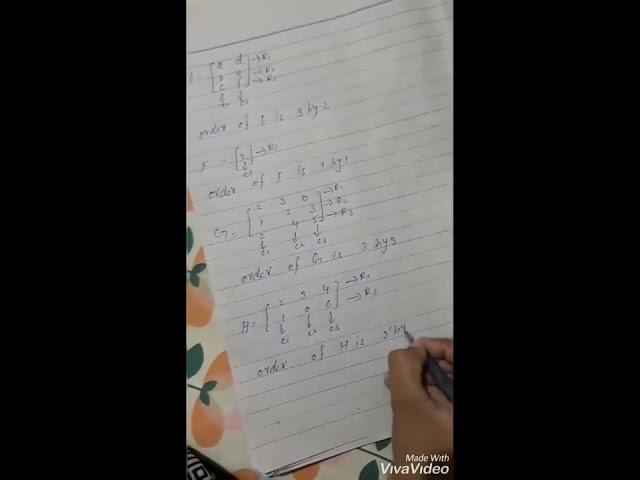 = [a d] → R1
[b e] → R2
[c f] → R3
↓ ↓
C1 C2
order of E is 3 by 2
F = [2] → R1
↓
C1
order of F is 1 by 1
G = [2 3 0] → R1
[1 2 3] → R2
[2 4 5] → R3
↓ ↓ ↓
C1 C2 C3
order of G is 3 by 3
H = [2 3 4] → R1
[1 0 6] → R2
↓ ↓ ↓
C1 C2 C3
order of H is 2 by
Made With
VivaVideo